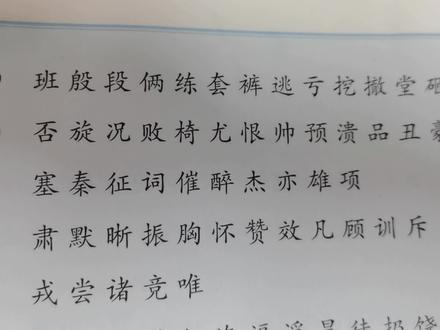 班殷段俩练套裤逃亏挖撤堂砸
否旋况败椅尤恨帅预溃品丑豪
塞秦征词催醉杰亦雄项
肃默晰振胸怀赞效凡顾训斥
戎尝诸竞唯